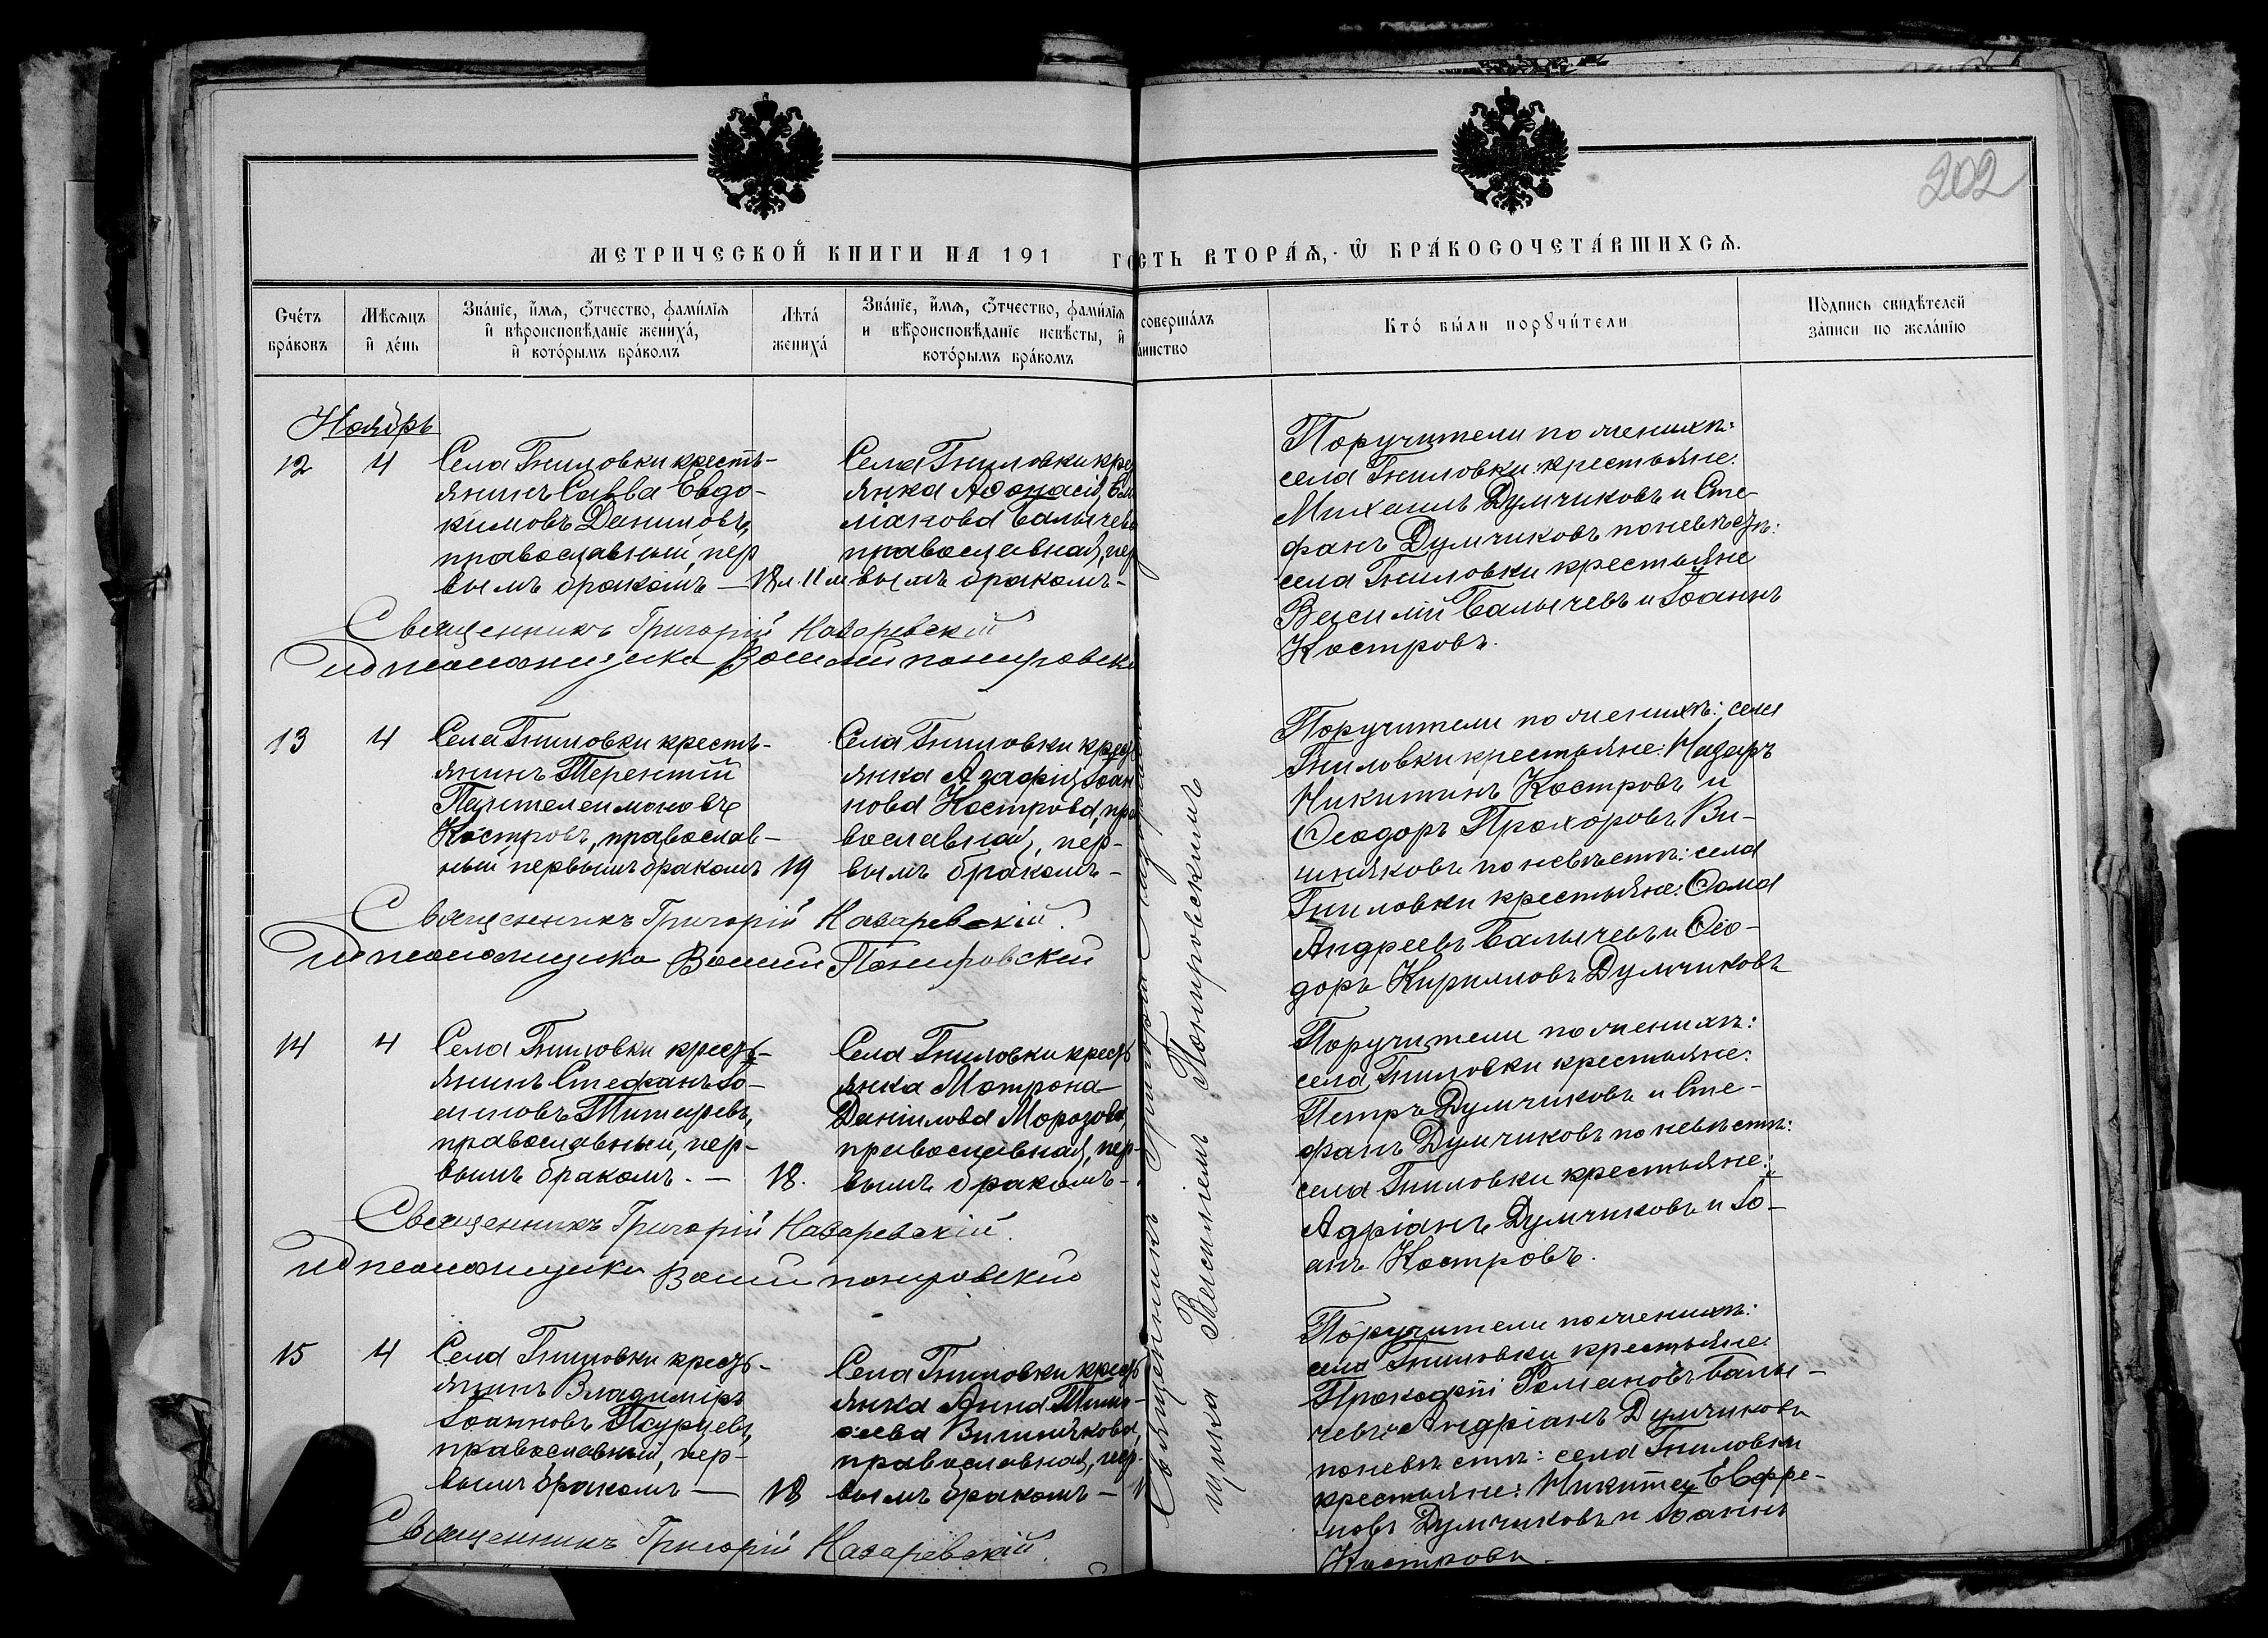 202
МЕТРИЧЕСКОЙ КНИГИ НА 191
ГОСТЬ ВТОРА́Ѧ, Ѡ БРА́КОСОЧЕТА́ВШИХСѦ.
Сче́тъ
бра́ковъ
Мѣ́сяцъ
и҆ де́нь
Зва́нїе, и҆́мѧ, ѻ҆́тчество, фами́лїѧ
и҆ вѣроисповѣ́данїе жениха̀,
и҆ кото́рымъ бра́комъ
Лѣ́та
жениха̀
Зва́нїе, и҆́мѧ, ѻ҆́тчество, фами́лїѧ
и вѣроисповѣ́данїе невѣ́сты, и҆
кото́рымъ бра́комъ
соверша́лъ
аинство
Кто̀ бы́ли порꙋчи́тели
По́дпись свидѣ́телей
за́писи по жела́нїю
Ноябрь
12 4
Села Гниловки кресть-
янинъ Савва Евдо-
кимовъ Даниловъ,
православный, пер
вымъ бракомъ —
18 л. 11 м
Села Гниловки кре
янка Афанасія
Балычева
православная, пер
вымъ бракомъ -
Поручители по женихѣ:
села Гниловки: крестьяне:
Михаилъ Думчиковъ и Сте-
фанъ Думчиковъ по невѣстѣ:
села Гниловки крестьяне
Василій Балычевъ и Іоаннъ
Костровъ.
Священникъ Григорій Назаревскій
Псаломщикъ Василій Понировскі
13 4
Села Гниловки кресть-
янинъ Терентій
Пантелеимоновъ
Костровъ, православ-
ный первымъ бракомъ
19
Села Гниловки крест
янка Агафія Іоан
нова Кострова, пра
вославная, пер-
вымъ бракомъ -
Поручители по женихѣ: села
Гниловки крестьяне: Назаръ
Никитинъ Костровъ и
Ѳеодоръ Прохоровъ Ви-
шняковъ по невѣстѣ: села
Гниловки крестьяне: Ѳома
Андреевъ Балычевъ и Ѳео-
доръ Кирилловъ Думчиковъ
Священникъ Григорій Назаревскій.
Псаломщикъ Василій Понировскій
14 4
Села Гниловки кресть-
янинъ Стефанъ Іо-
анновъ Титаревъ,
православный, пер-
вымъ бракомъ. —
18.
Села Гниловки кресть
янка Матрона
Данилова Морозова,
православная, пер-
вымъ бракомъ -
Поручители по женихѣ:
села Гниловки крестьяне:
Петръ Думчиковъ и Сте-
фанъ Думчиковъ по невѣстѣ:
села Гниловки крестьяне:
Адріанъ Думчиковъ и Іо-
анъ Костровъ.
Священникъ Григорій Назаревскій.
Псаломщикъ Василій Понировскій
15 4
Села Гниловки кресть-
янинъ Владиміръ
Іоанновъ
православный, пер-
вымъ бракомъ —
18
Села Гниловки кресть
янка Анна Тимо-
феева Вишнякова,
православная, пер-
вымъ бракомъ -
Поручители по женихѣ:
села Гниловки крестьяне:
Прокофій Романовъ Балы-
чевъ и Андріанъ Думчиковъ
по невѣстѣ: села Гниловки
крестьяне: Никита Евфре-
мовъ Думчиковъ и Іоаннъ
Костровъ.
Священникъ Григорій Назаревскій.
Священникъ Григорій
щика Василіемъ Понировскимъ